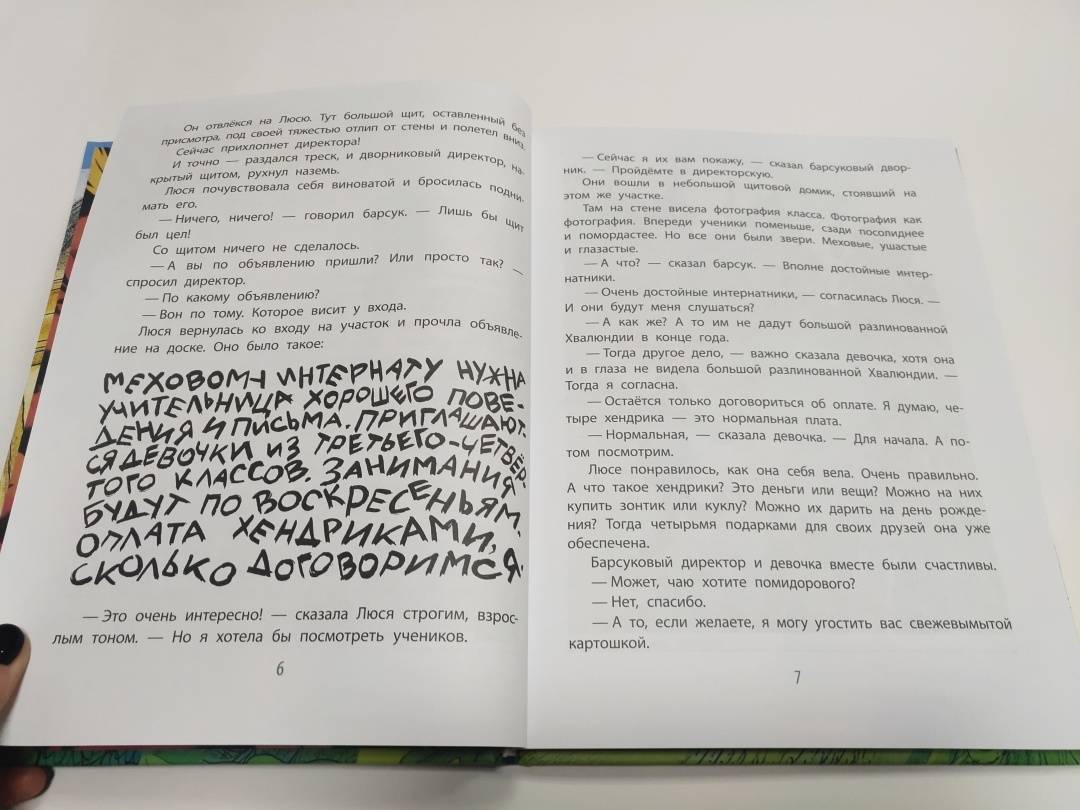 Он отвлёкся на Люсю. Тут большой щит, оставленный без
присмотра, под своей тяжестью отлип от стены и полетел вниз.
Сейчас прихлопнет директора!
И точно — раздался треск, и дворниковый директор, на-
крытый щитом, рухнул наземь.
Люся почувствовала себя виноватой и бросилась подни-
мать его.
— Ничего, ничего! — говорил барсук. — Лишь бы щит
был цел!
Со щитом ничего не сделалось.
— А вы по объявлению пришли? Или просто так? —
спросил директор.
— По какому объявлению?
— Вон по тому. Которое висит у входа.
Люся вернулась ко входу на участок и прочла объявле-
ние на доске. Оно было такое:
МЕХОВОМУ ИНТЕРНАТУ НУЖНА
УЧИТЕЛЬНИЦА ХОРОШЕГО ПОВЕ-
ДЕНИЯ И ПИСЬМА. ПРИГЛАШАЮТ-
СЯ ДЕВОЧКИ ИЗ ТРЕТЬЕГО-ЧЕТВЁР-
ТОГО КЛАССОВ. ЗАНИМАНИЯ
БУДУТ ПО ВОСКРЕСЕНЬЯМ.
ОПЛАТА ХЕНДРИКАМИ,
СКОЛЬКО ДОГОВОРИМСЯ.
— Это очень интересно! — сказала Люся строгим, взрос-
лым тоном. — Но я хотела бы посмотреть учеников.
6
— Сейчас я их вам покажу, — сказал барсуковый двор-
ник. — Пройдёмте в директорскую.
Они вошли в небольшой щитовой домик, стоявший на
этом же участке.
Там на стене висела фотография класса. Фотография как
фотография. Впереди ученики поменьше, сзади посолиднее
и помордастее. Но все они были звери. Меховые, ушастые
и глазастые.
— А что? — сказал барсук. — Вполне достойные интер-
натники.
— Очень достойные интернатники, — согласилась Люся. —
И они будут меня слушаться?
— А как же? А то им не дадут большой разлинованной
Хвалюндии в конце года.
— Тогда другое дело, — важно сказала девочка, хотя она
и в глаза не видела большой разлинованной Хвалюндии. —
Тогда я согласна.
— Остаётся только договориться об оплате. Я думаю, че-
тыре хендрика — это нормальная плата.
— Нормальная, — сказала девочка. — Для начала. А по-
том посмотрим.
Люсе понравилось, как она себя вела. Очень правильно.
А что такое хендрики? Это деньги или вещи? Можно на них
купить зонтик или куклу? Можно их дарить на день рожде-
ния? Тогда четырьмя подарками для своих друзей она уже
обеспечена.
Барсуковый директор и девочка вместе были счастливы.
— Может, чаю хотите помидорового?
— Нет, спасибо.
— А то, если желаете, я могу угостить вас свежевымытой
картошкой.
7